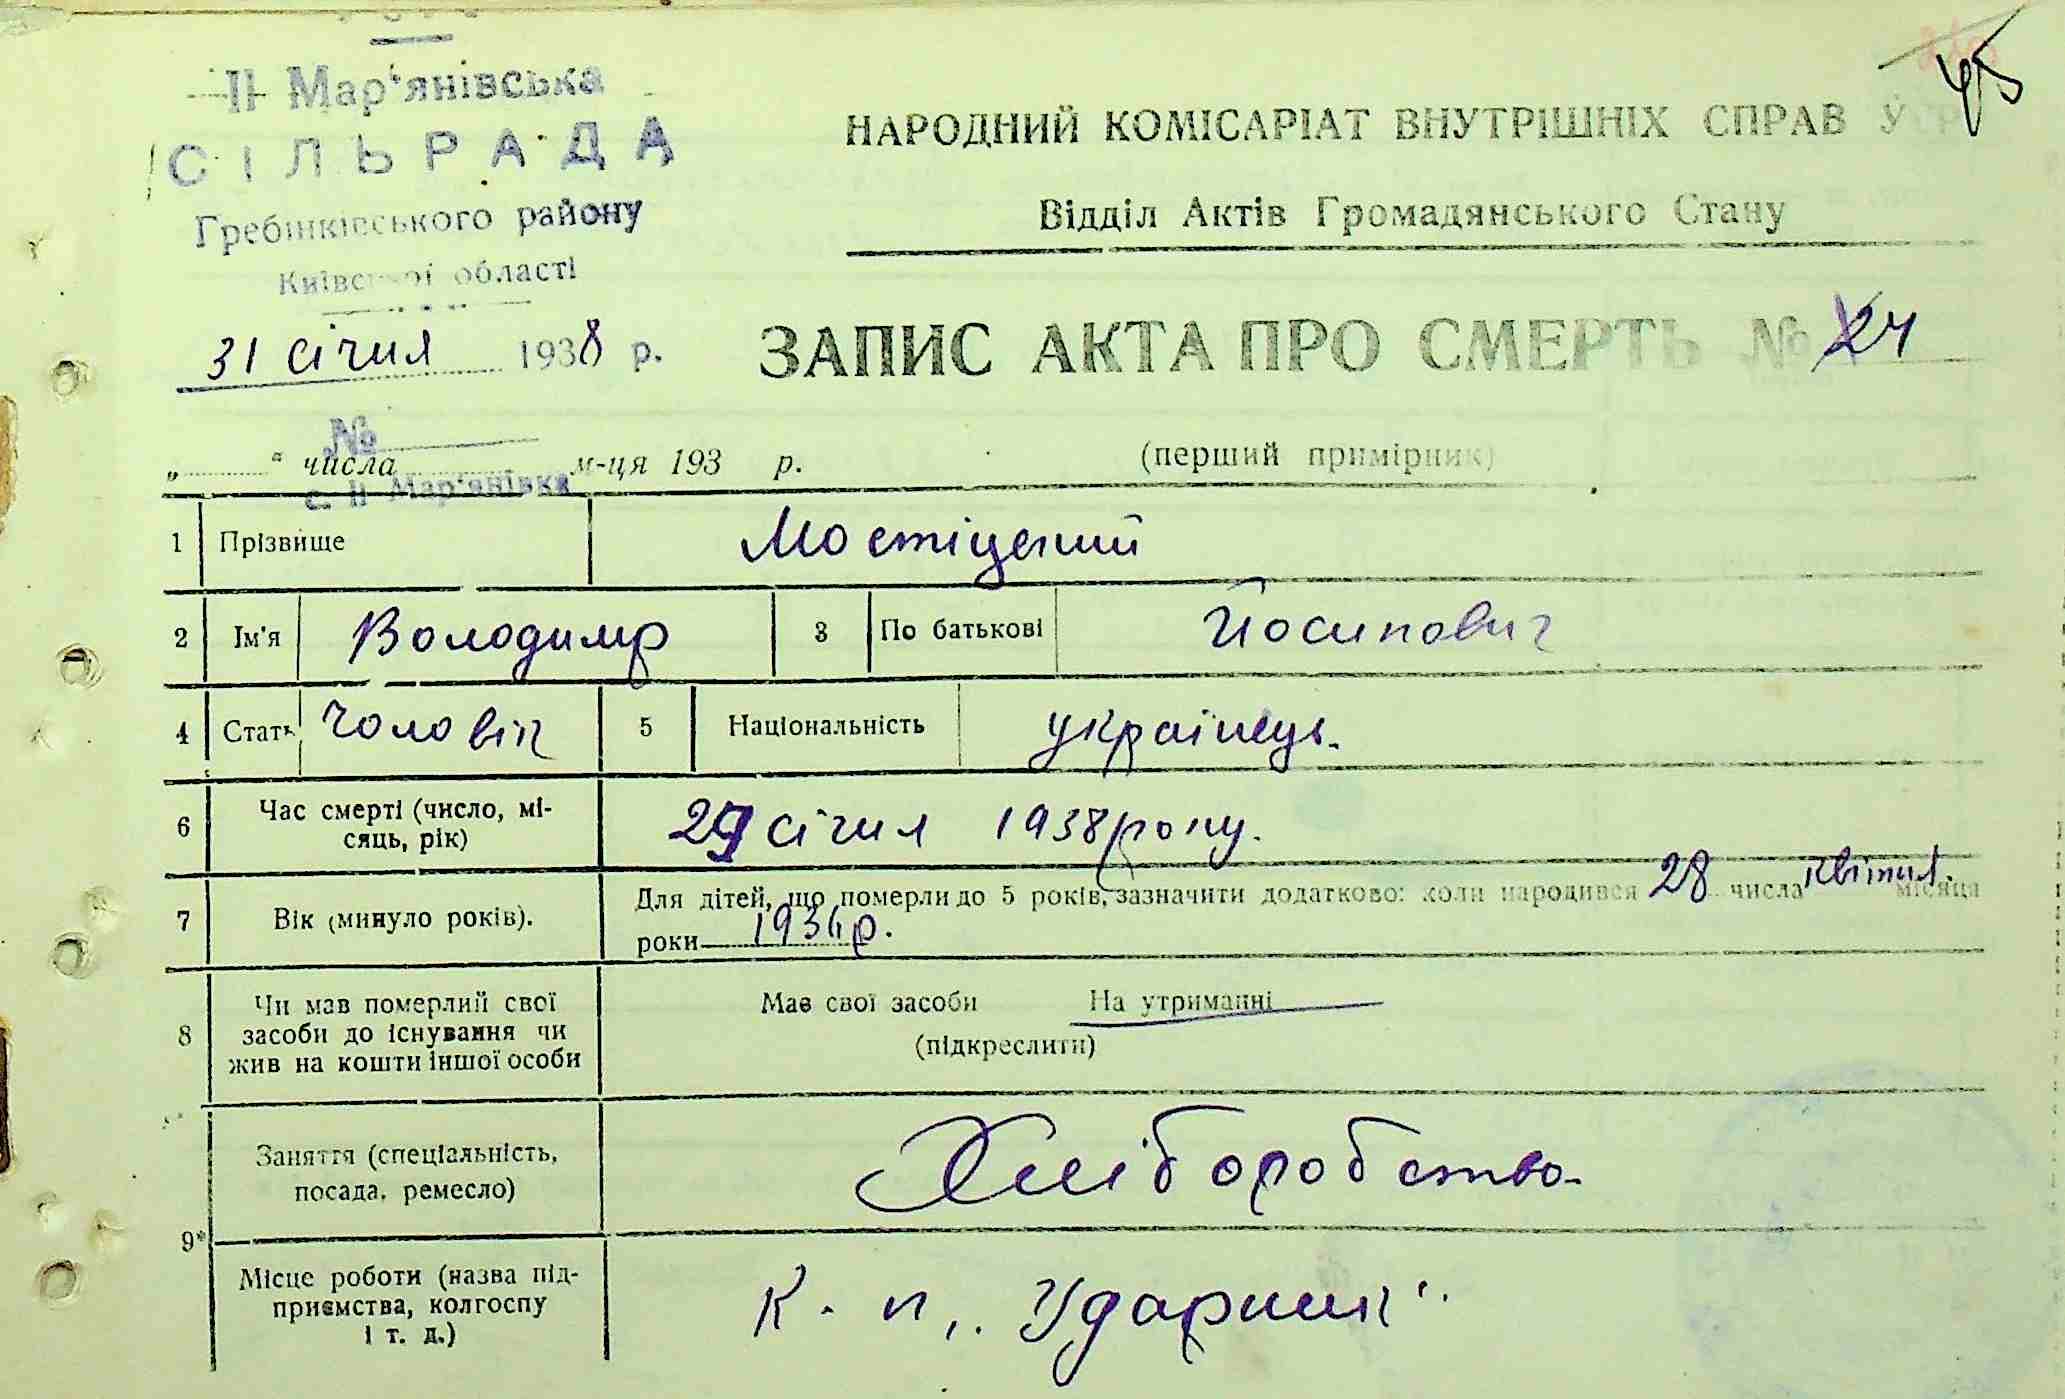 II Мар'янівська
СІЛЬРАДА
Гребінківського району
Київської області
31 січня 1938 р.
№
с. II Мар'янівка
45
НАРОДНИЙ КОМІСАРІАТ ВНУТРІШНІХ СПРАВ УСРР
Відділ Актів Громадянського Стану
ЗАПИС АКТА ПРО СМЕРТЬ № 24
„ “ числа м-ця 193 р.
(перший примірник)
1 Прізвище Мостіцький
2 Ім'я Володимр 3 По батькові Йосипович
4 Стать Чоловік 5 Національність українець.
6 Час смерті (число, мі-
сяць, рік) 29 січня 1938 року.
7 Вік (минуло років). Для дітей, що померли до 5 років, зазначити додатково: коли народився 28 числа квітня. місяця
роки 1936 р.
8 Чи мав померлий свої
засоби до існування чи
жив на кошти іншої особи
Має свої засоби На утриманні
(підкреслити)
9* Заняття (спеціальність,
посада, ремесло) Хліборобство.
Місце роботи (назва під-
приємства, колгоспу
і т. д.) К-п „Ударник“.